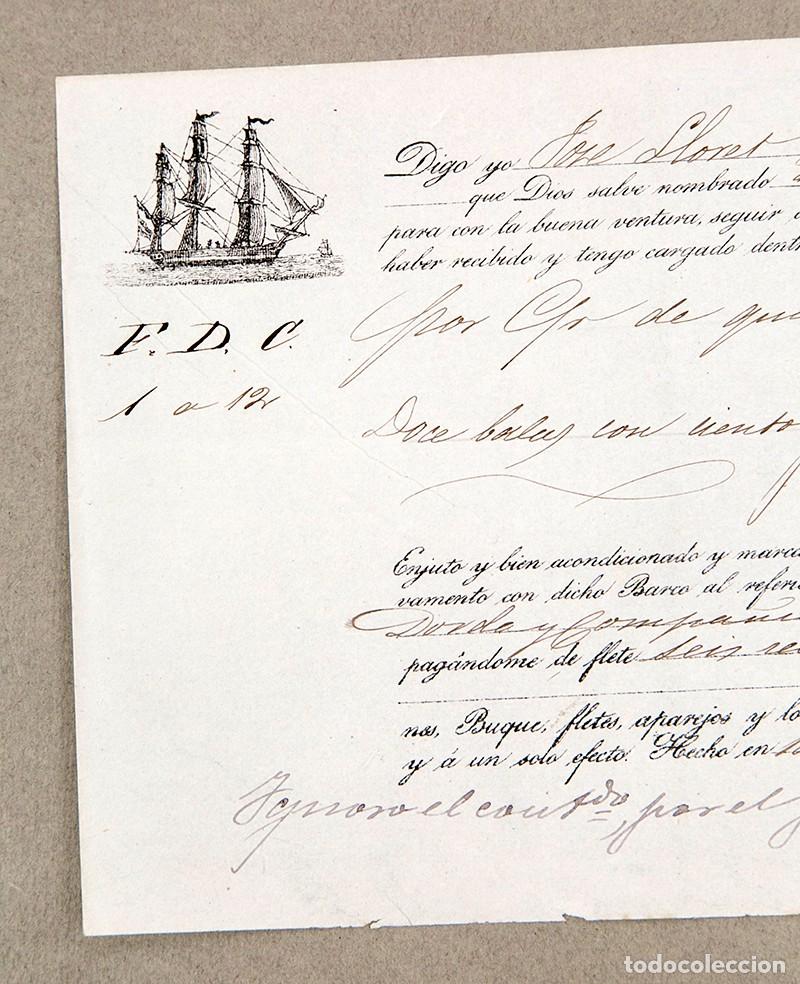 Digo yo Jose Lloret
que Dios salve nombrado
para con la buena ventura, seguir
haber recibido y tengo cargado dentr
F. D. C.
por Cta de que
1 a 12
Doce balas con ciento
Enjuto y bien acondicionado y marca
vamento con dicho Barco al referi
Dorda y Compañi
pagándome de flete seis re
nos, Buque, fletes, aparejos y lo
y á un solo efecto. Hecho en
Ignoro el contdo por el
todocoleccion